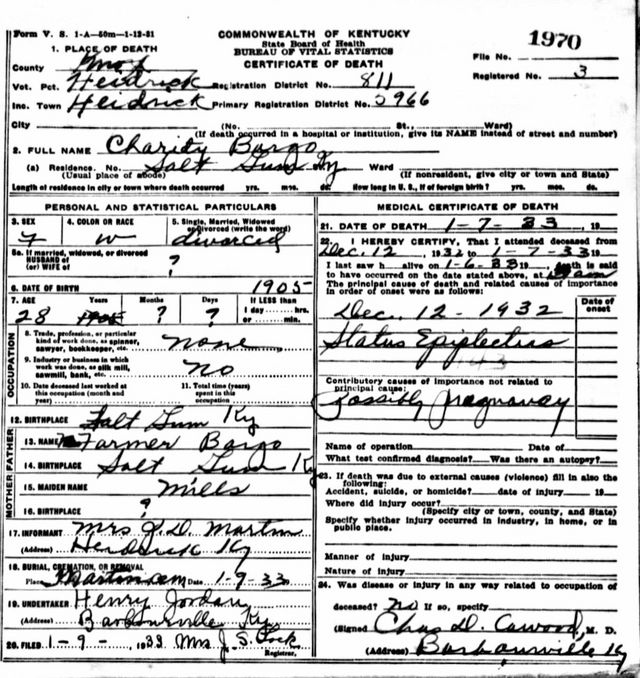 Form V. S. 1-A—50m—1-12-31
COMMONWEALTH OF KENTUCKY
State Board of Health
BUREAU OF VITAL STATISTICS
CERTIFICATE OF DEATH
1970
File No.
Registered No. 3
1. PLACE OF DEATH
County Knox
Vot. Pct. Heidrick Registration District No. 811
Inc. Town Heidrick Primary Registration District No. 5966
City (No. St., Ward)
(If death occurred in a hospital or institution, give its NAME instead of street and number)
2. FULL NAME Charity Bargo
(a) Residence. No. Salt Gum Ky Ward
(Usual place of abode) (If nonresident, give city or town and State)
Length of residence in city or town where death occurred yrs. mos. ds. How long in U. S., if of foreign birth? yrs. mos. ds.
PERSONAL AND STATISTICAL PARTICULARS
3. SEX
F
4. COLOR OR RACE
W
5. Single, Married, Widowed
or Divorced (write the word)
divorced
5a. If married, widowed, or divorced
HUSBAND of
(or) WIFE of ?
6. DATE OF BIRTH 1905
7. AGE Years Months Days If LESS than
1 day hrs.
or min.
28 1905 ? ?
OCCUPATION
8. Trade, profession, or particular
kind of work done, as spinner,
sawyer, bookkeeper, etc. none
9. Industry or business in which
work was done, as silk mill,
sawmill, bank, etc. no
10. Date deceased last worked at
this occupation (month and
year)
11. Total time (years)
spent in this
occupation
12. BIRTHPLACE Salt Gum Ky
FATHER
13. NAME Farmer Bargo
14. BIRTHPLACE Salt Gum Ky
MOTHER
15. MAIDEN NAME Mills
16. BIRTHPLACE ?
17. INFORMANT Mrs J. D. Martin
(Address) Heidrick Ky
18. BURIAL, CREMATION, OR REMOVAL
Place Martin cem Date 1-9-33
19. UNDERTAKER Henry Jordan
(Address) Barbourville Ky
20. FILED 1-9- 1933 Mrs J. S.
Registrar.
MEDICAL CERTIFICATE OF DEATH
21. DATE OF DEATH 1-7-33, 19
22. I HEREBY CERTIFY, That I attended deceased from
Dec. 12, 1932 to 1-7-33 19
I last saw h alive on 1-6-33 19 death is said
to have occurred on the date stated above, at
The principal cause of death and related causes of importance
in order of onset were as follows:
Date of
onset
Dec. 12-1932
Status Epilecticus
Contributory causes of importance not related to
principal cause:
Possibly Pregnancy
Name of operation Date of
What test confirmed diagnosis? Was there an autopsy?
23. If death was due to external causes (violence) fill in also the
following:
Accident, suicide, or homicide? date of injury 19
Where did injury occur?
(Specify city or town, county, and State)
Specify whether injury occurred in industry, in home, or in
public place.
Manner of injury
Nature of injury
24. Was disease or injury in any way related to occupation of
deceased? No If so, specify
(Signed Chas D. Cawood, M. D.
(Address) Barbourville Ky